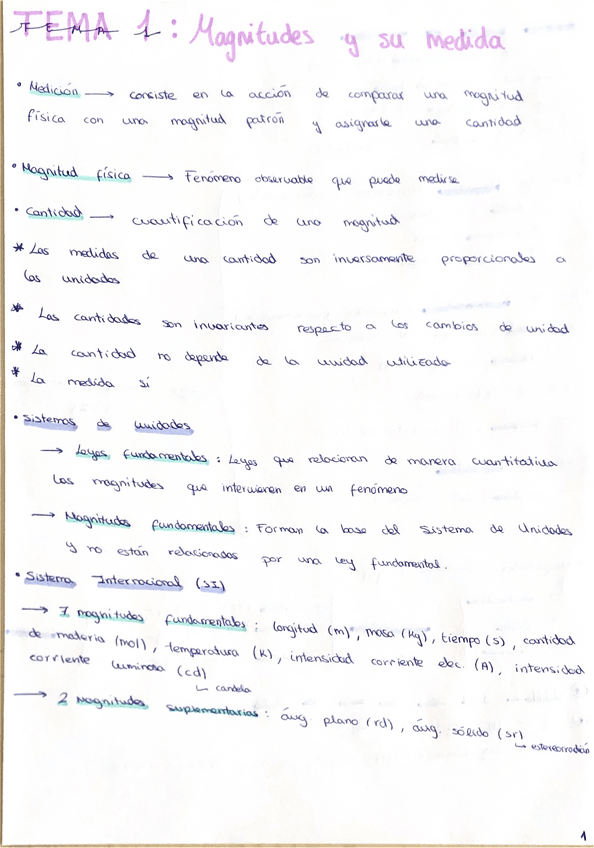 TEMA 1: Magnitudes y su medida
• Medición → consiste en la acción de comparar una magnitud
física con una magnitud patrón y asignarle una cantidad
• Magnitud física → Fenómeno observable que puede medirse
• Cantidad → cuantificación de una magnitud
* Las medidas de una cantidad son inversamente proporcionales a
las unidades
* Las cantidades son invariantes respecto a los cambios de unidad
* La cantidad no depende de la unidad utilizada
* La medida sí
• Sistemas de unidades
→ Leyes fundamentales: Leyes que relacionan de manera cuantitativa
las magnitudes que intervienen en un fenómeno
→ Magnitudes fundamentales: Forman la base del Sistema de Unidades
y no están relacionadas por una ley fundamental.
• Sistema Internacional (SI)
→ 7 magnitudes fundamentales: longitud (m), masa (Kg), tiempo (s), cantidad
de materia (mol), temperatura (K), intensidad corriente elec. (A), intensidad
corriente luminosa (cd)
↳ candela
→ 2 Magnitudes suplementarias: áng. plano (rd), áng. sólido (sr)
↳ estereorradián
1